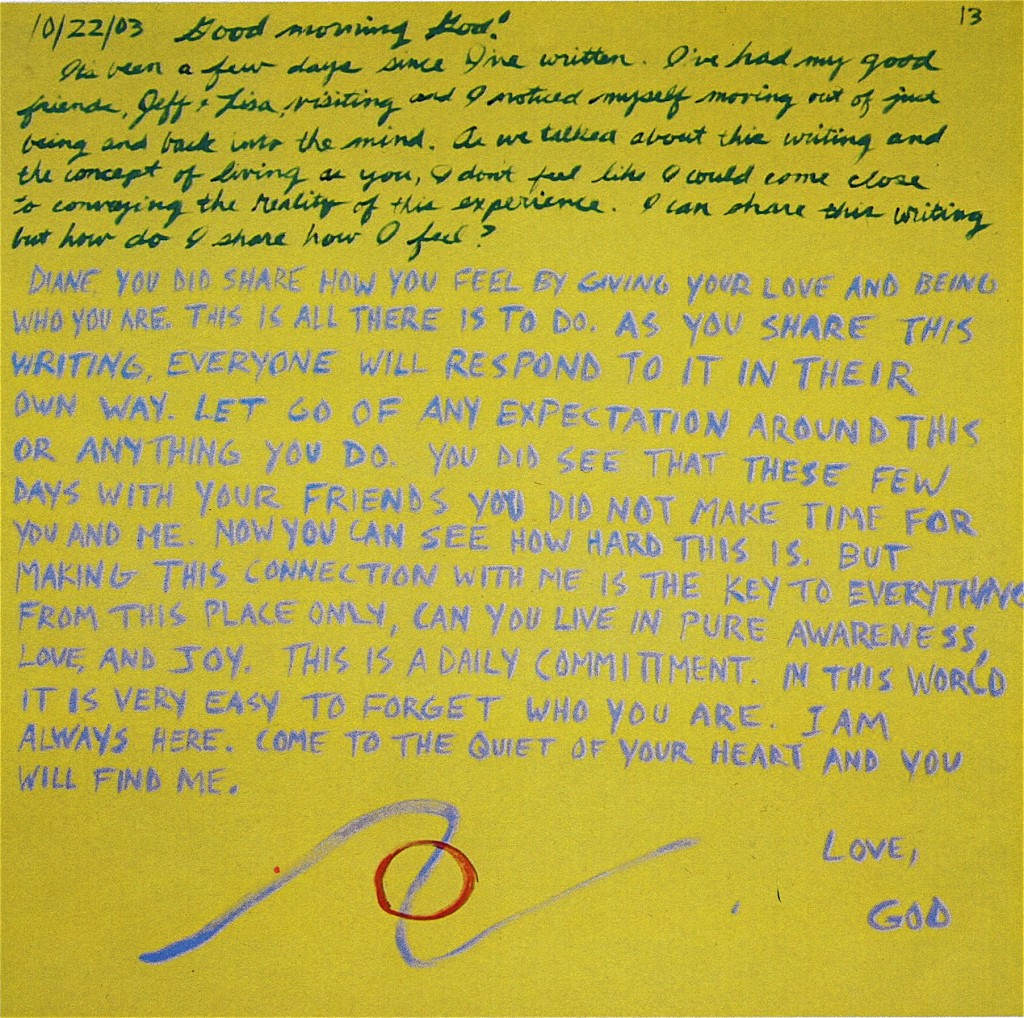 10/22/03 Good morning God! 13
Its been a few days since I've written. I've had my good
friends, Jeff & Lisa, visiting and I noticed myself moving out of just
being and back into the mind. As we talked about this writing and
the concept of living as you, I don't feel like I could come close
to conveying the reality of this experience. I can share this writing
but how do I share how I feel?
DIANE YOU DID SHARE HOW YOU FEEL BY GIVING YOUR LOVE AND BEING
WHO YOU ARE. THIS IS ALL THERE IS TO DO. AS YOU SHARE THIS
WRITING, EVERYONE WILL RESPOND TO IT IN THEIR
OWN WAY. LET GO OF ANY EXPECTATION AROUND THIS
OR ANYTHING YOU DO. YOU DID SEE THAT THESE FEW
DAYS WITH YOUR FRIENDS YOU DID NOT MAKE TIME FOR
YOU AND ME. NOW YOU CAN SEE HOW HARD THIS IS. BUT
MAKING THIS CONNECTION WITH ME IS THE KEY TO EVERYTHING
FROM THIS PLACE ONLY, CAN YOU LIVE IN PURE AWARENESS,
LOVE, AND JOY. THIS IS A DAILY COMMITTMENT. IN THIS WORLD
IT IS VERY EASY TO FORGET WHO YOU ARE. I AM
ALWAYS HERE. COME TO THE QUIET OF YOUR HEART AND YOU
WILL FIND ME.
LOVE,
GOD